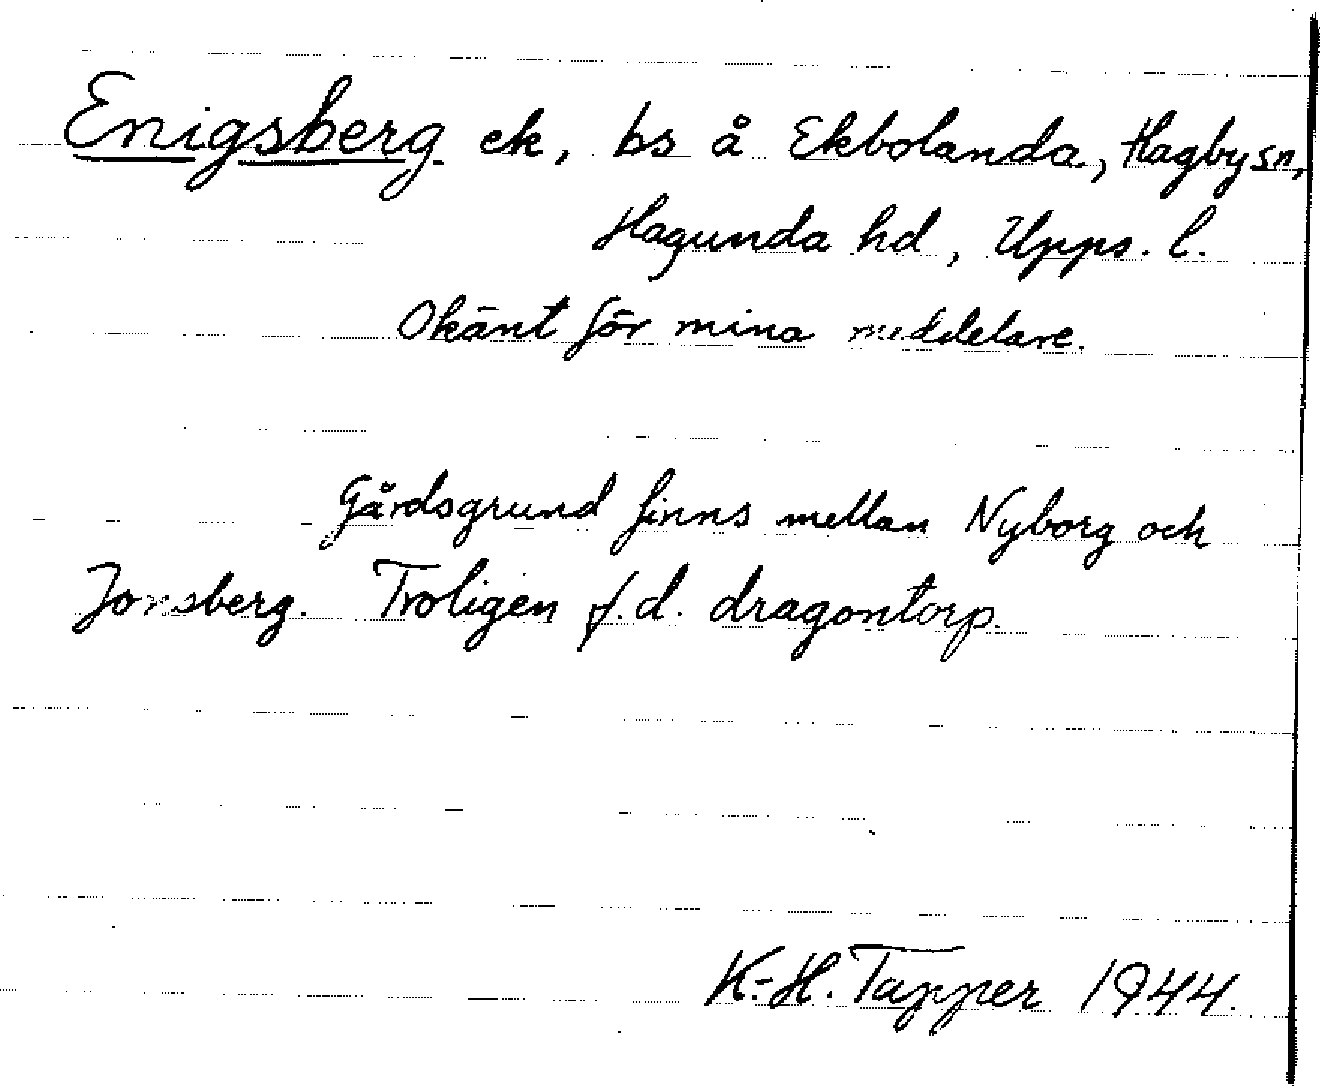 Enigsberg ek, bs å Ekbolanda, Hagby sn,
Hagunda hd, Upps. l.
Okänt för mina meddelare.
Gårdsgrund finns mellan Nyborg och
Jonsberg. Troligen f.d. dragontorp.
K.-H. Tapper 1944.